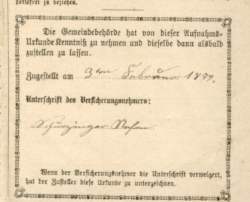 zustellen zu lassen.
Die Gemeindebehörde hat von dieser Aufnahms-
Urkunde Kenntniß zu nehmen und dieselbe dann alsbald
zustellen zu lassen.
Zugestellt am 3ten Februar
Unterschrift des Versicherungsnehmers:
Wenn der Versicherungsnehmer die Unterschrift verweigert,
hat der Zusteller diese Urkunde zu unterzeichnen.